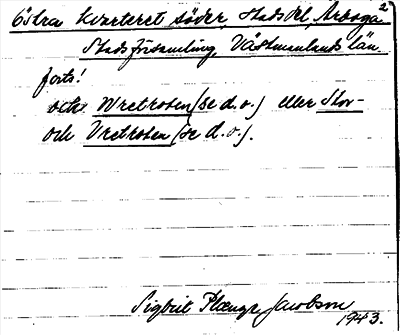 Östra Kvarteret söder, Stadsdel, Arboga 2
Stadsförsamling, Västmanlands län.
forts!
och Wretrosen (se d.o.) eller Stor-
och Vretrosen (se d.o.).
Sigbrit Plænge Jacobson
1943.